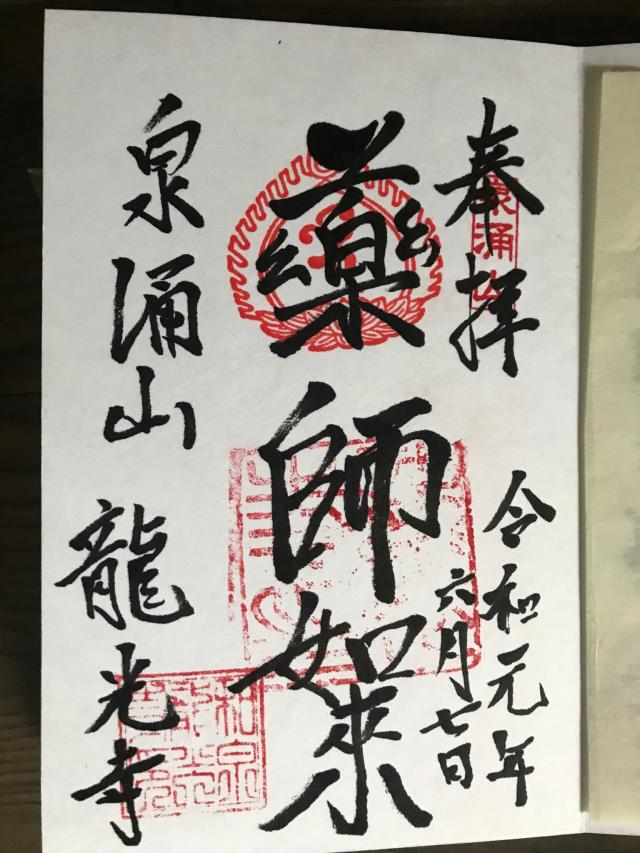 奉拜
泉涌山
令和元年
六月七日
藥師如來
泉涌山 龍光寺